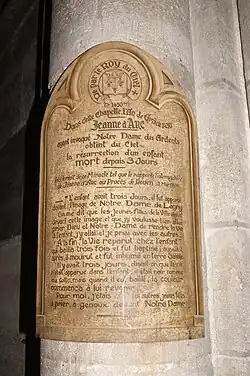 De par le Roy du Ciel
Dans cette Chapelle l'An de Grâce 1430
Jeanne d'Arc
ayant invoqué Notre Dame des Ardents
obtint du Ciel
la résurrection d'un enfant
mort depuis 3 Jours
Jeanne d'Arc au Procès de Rouen
"L'enfant avait trois Jours, il fut apporté
à l'Image de Notre Dame de
Dame dit que les jeunes filles de la Ville étaient
devant cette image, et que j'y voulusse
prier Dieu et Notre-Dame de rendre la vie
à l'enfant. J'y allai et je priai avec les autres.
A la fin, la Vie reparut chez l'enfant
il bailla trois fois et fut baptisé
après, il mourut et fut inhumé en terre Sainte
Il y avait trois jours, disait-on, que la vie
n'était apparue dans l'enfant, il était noir comme
ma cotte; mais quand il eut baillé, la couleur
commença à lui revenir.
Pour moi, j'étais avec les autres jeunes filles
à prier, à genoux devant Notre Dame"